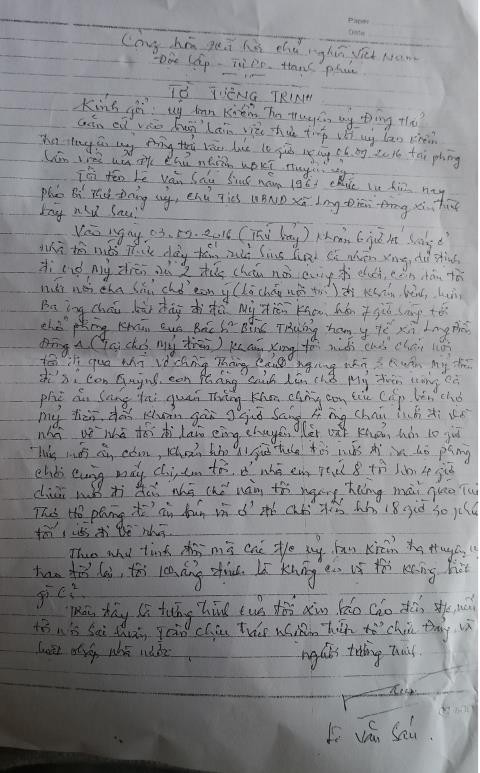 Paper
Date
Cộng hòa xã hội chủ nghĩa Việt Nam
Độc lập - Tự Do - Hạnh phúc
TỜ TƯỜNG TRÌNH
Kính gởi: uỷ ban kiểm tra Huyện uỷ Đông Hải
Căn cứ vào buổi làm việc trực tiếp với uỷ ban kiểm
tra Huyện uỷ Đông Hải vào lúc 10 giờ ngày 06.09.2016 tại phòng
làm việc của đ/c chủ nhiệm UBKT Huyện uỷ
Tôi tên Lê Văn Sáu sinh năm 196 chức vụ hiện nay
phó Bí Thư Đảng uỷ, chủ tịch UBND xã Long Điền Đông xin trình
bày như sau:
Vào ngày 03.09.2016 (Thứ bảy) khoản 6 giờ sáng ở
nhà tôi mới thức dậy tắm rửa sinh hoạt cá nhân xong, dự định
đi chợ Mỹ điền và 2 đứa cháu nội cùng đi chơi, con dâu tôi
mới nói cha sẵn chở con ý (là cháu nội tôi) đi khám bệnh, luôn
Ba ông cháu bắt đầy đi đến Mỹ Điền khoản hơn 7 giờ sáng tới
chổ phòng khám của Bác sĩ Bình Trưởng trạm y tế xã Long Điền
Đông A (Tại chợ Mỹ điền) khám xong tôi mới chở cháu nội
tôi đi qua nhà vợ chồng Thằng Cảnh ngang nhà 3 Quân Mỹ điền
để con Quỳnh con thằng cảnh lên chợ Mỹ điền uống cà
phê ăn sáng tại quán Thằng Khoa chồng con út Cấp bên chợ
Mỹ điền, đến khoản gần 9 giờ sáng 4 ông cháu mới đi về
nhà về nhà tôi đi làm công chuyện lặt vặt khoản hơn 10 giờ
mới ăn cơm, khoản hơn 11 giờ trưa tôi mới đi ra hộ phòng
chơi cùng mấy chị, em tôi ở nhà em thứ 8 tới hơn 4 giờ
chiều mới đi đến nhà chế năm tôi ngang trường mẫu giáo Tuổi
Thơ Hộ phòng để ăn bún và ở đó chơi đến hơn 18 giờ 30 phút
tối mới đi về nhà.
Theo như tình đơn mà các đ/c uỷ ban kiểm tra Huyện uỷ
trao đổi lại, tôi khẳng định là không có và tôi không biết
gì cả.
Trên đây là tường trình của tôi xin báo cáo đến đ/c, nếu
tôi nói sai hoàn toàn chịu trách nhiệm trước tổ chức Đảng và
luật pháp nhà nước.
người tường trình.
Lê Văn Sáu.